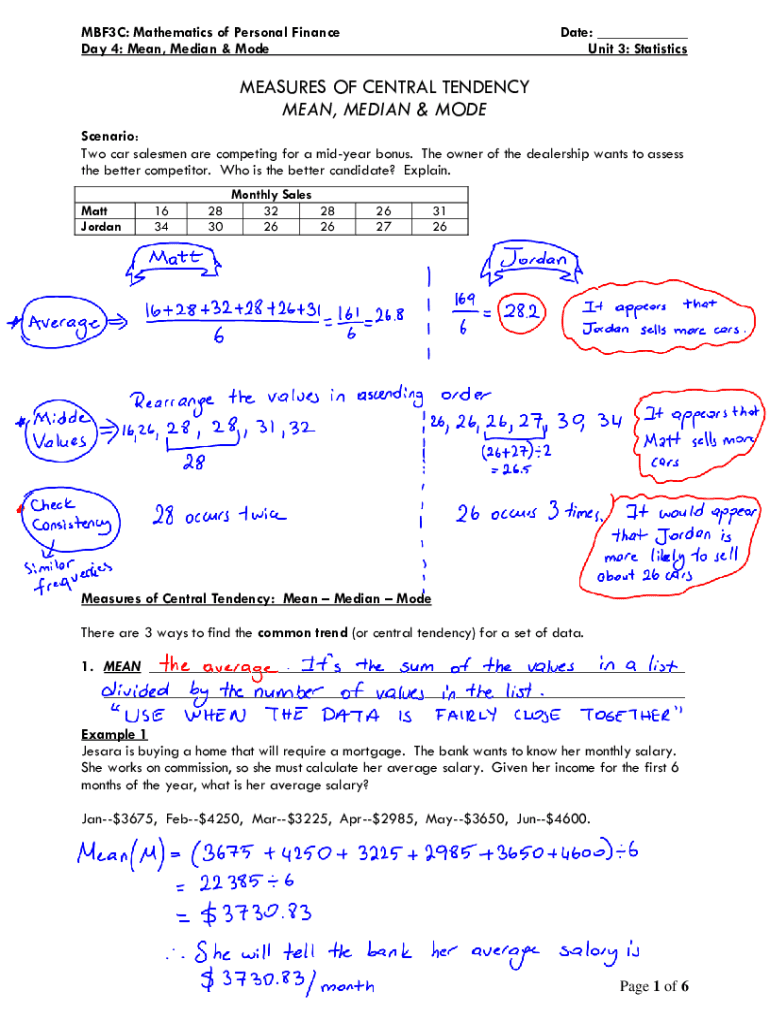 MBF3C: Mathematics of Personal Finance Date: ____________
Day 4: Mean, Median & Mode Unit 3: Statistics
MEASURES OF CENTRAL TENDENCY
MEAN, MEDIAN & MODE
Scenario:
Two car salesmen are competing for a mid-year bonus. The owner of the dealership wants to assess
the better competitor. Who is the better candidate? Explain.
Monthly Sales
Matt 16 28 32 28 26 31
Jordan 34 30 26 26 27 26
Matt Jordan
* Average ⇒ 16+28+32+28+26+31/6 = 161/6 = 26.8 169/6 = 28.2 It appears that
Jordan sells more cars.
Rearrange the values in ascending order
* Midde Values ⇒ 16,26, 28, 28, 31, 32 26, 26, 26, 27, 30, 34 It appears that
28 (26+27)÷2 Matt sells more
= 26.5 cars
* Check Consistency 28 occurs twice 26 occurs 3 times. It would appear
that Jordan is
Similar more likely to sell
frequencies about 26 cars
Measures of Central Tendency: Mean – Median – Mode
There are 3 ways to find the common trend (or central tendency) for a set of data.
1. MEAN the average. It's the sum of the values in a list
divided by the number of values in the list.
"USE WHEN THE DATA IS FAIRLY CLOSE TOGETHER"
Example 1
Jesara is buying a home that will require a mortgage. The bank wants to know her monthly salary.
She works on commission, so she must calculate her average salary. Given her income for the first 6
months of the year, what is her average salary?
Jan--$3675, Feb--$4250, Mar--$3225, Apr--$2985, May--$3650, Jun--$4600.
Mean(M) = (3675 + 4250 + 3225 + 2985 + 3650 + 4600) ÷ 6
= 22 385 ÷ 6
= $3730.83
∴ She will tell the bank her average salary is
$3730.83/month
Page 1 of 6